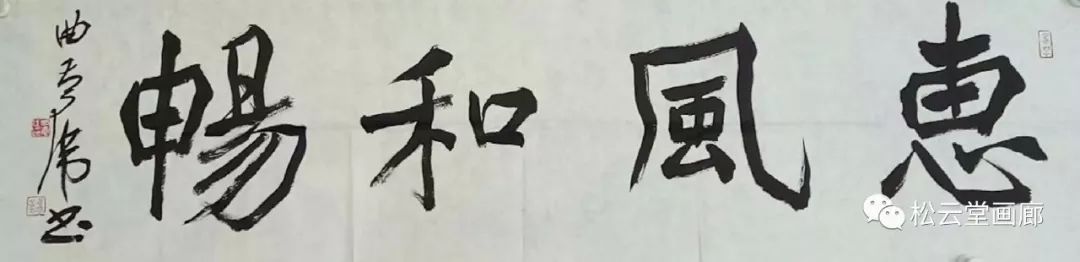 恵風和暢
曲
书
松云堂画廊